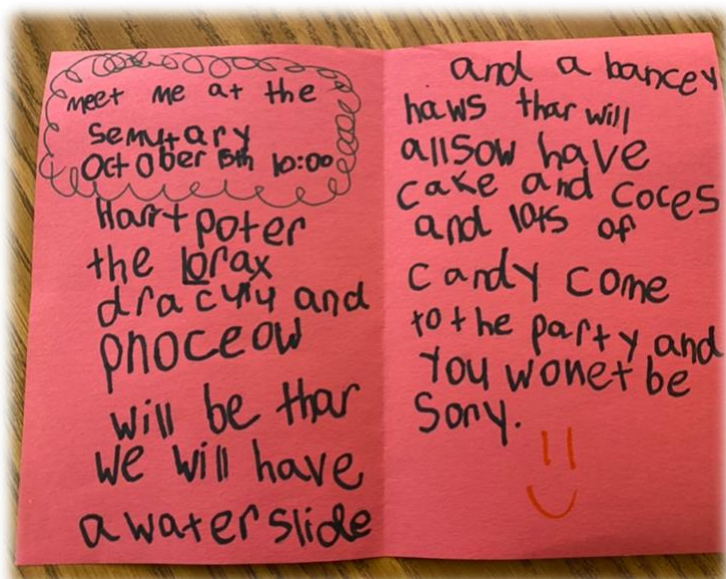 meet me at the
Semutary
October 15th 10:00
Harrt poter
the lorax
draculy and
pnoceow
will be thar
we will have
a water slide
and a bancey
haws thar will
allsow have
cake and coces
and lots of
candy come
to the party and
you wonet be
Sory.